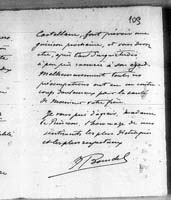 103
Castellane, font prévoir une
guérison prochaine, et vous devez
être, après tant d'inquiétudes
à peu près rassurée à son égard.
Malheureusement toutes vos
préoccupations ont eu un contre
coup douloureux pour la santé
de Monsieur votre père.
Je vous prie d'agréer, madame
l'hommage de mes
sentiments les plus distingués
et les plus respectueux